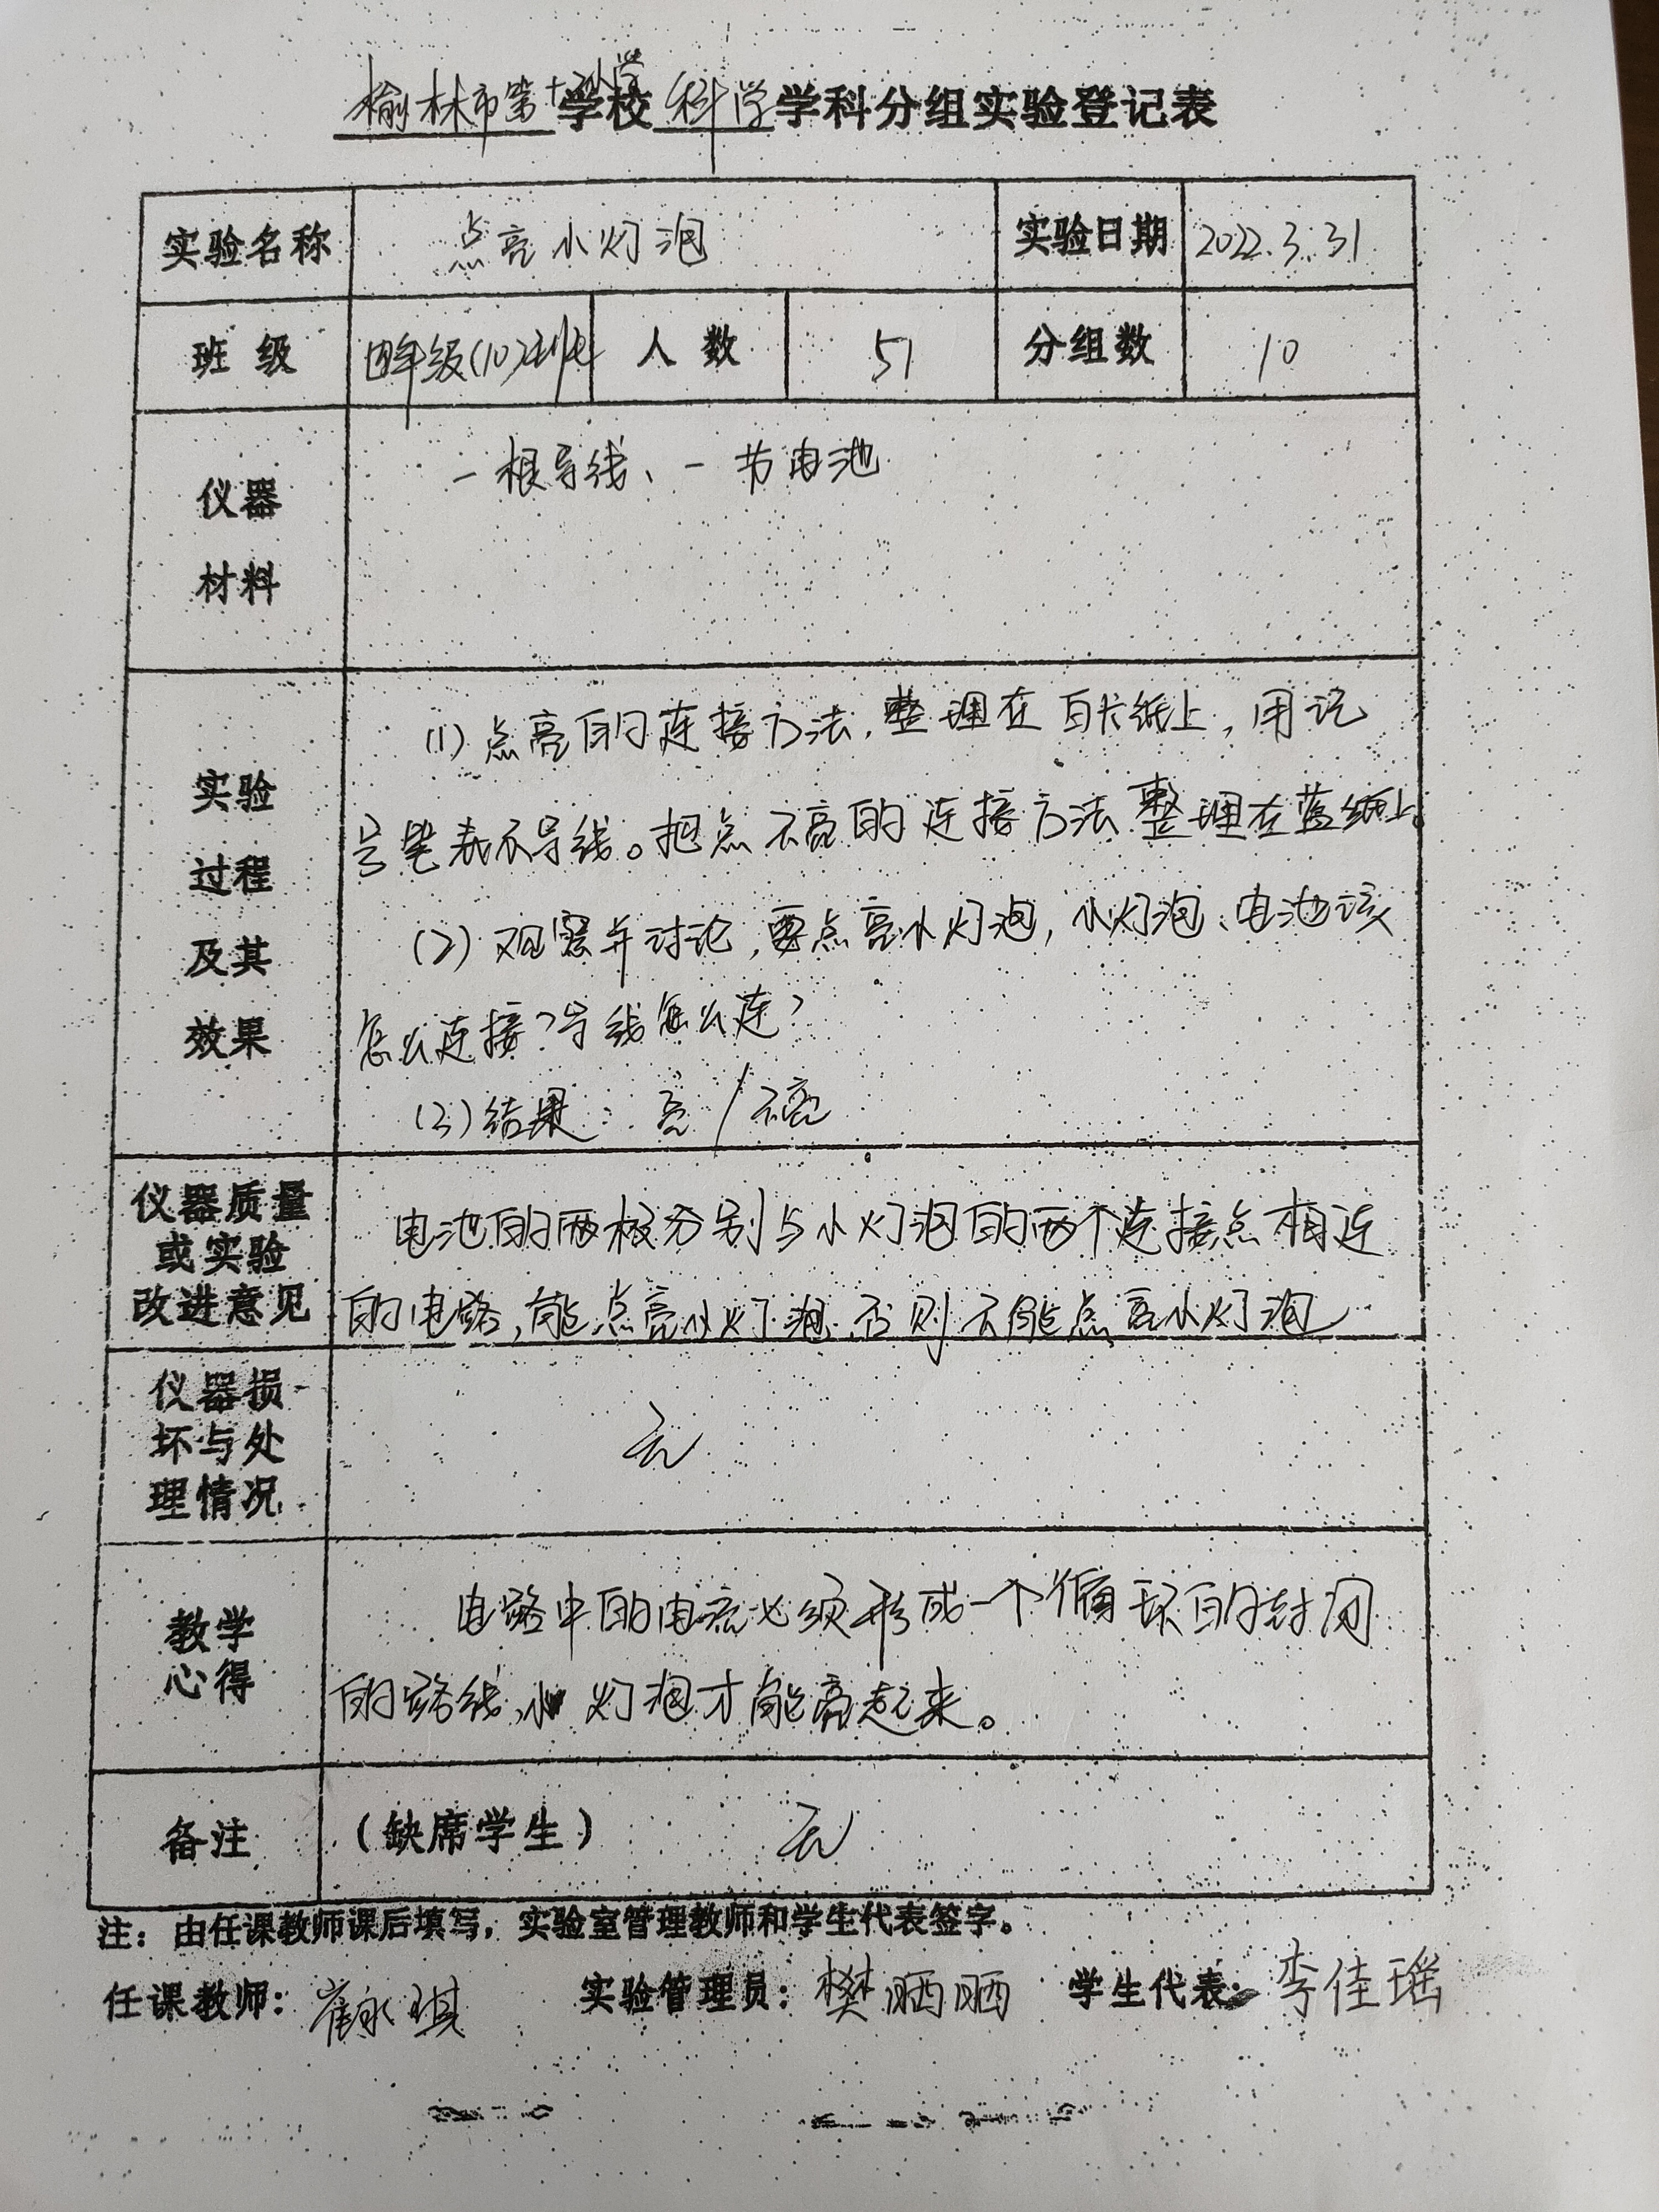 榆林市第十 小学 学校 科学 学科分组实验登记表
实验名称 点亮小灯泡 实验日期 2022.3.31
班 级 四年级(10)班 人 数 51 分组数 10
仪器
材料
一根导线、一节电池
实验
过程
及其
效果
(1) 点亮的连接方法,整理在白卡纸上,用记
号笔表示导线。把点不亮的连接方法整理在蓝纸上。
(2) 观察并讨论,要点亮小灯泡,小灯泡、电池该
怎么连接?导线怎么连?
(3) 结果: 亮/不亮
仪器质量
或实验
改进意见
电池的两极分别与小灯泡的两个连接点相连
的电路,能点亮小灯泡,否则不能点亮小灯泡
仪器损
坏与处
理情况
无
教学
心得
电路中的电流必须形成一个循环的封闭
的路线,小灯泡才能亮起来。
备注 (缺席学生) 无
注:由任课教师课后填写,实验室管理教师和学生代表签字。
任课教师: 崔 琪 实验管理员: 樊晒晒 学生代表: 李佳瑶